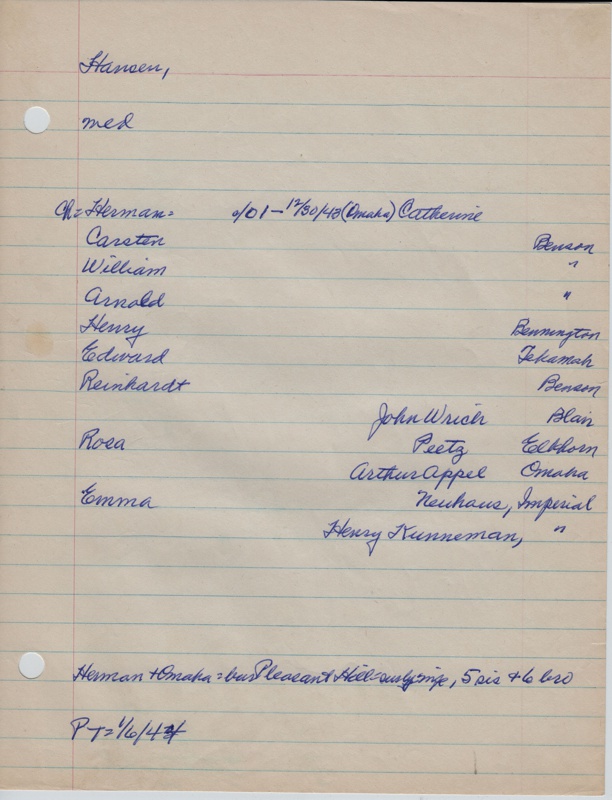 Hansen,
med
Ch = Herman = 0/01 - 12/30/43 (Omaha) Catherine
Carsten Benson
William "
Arnold "
Henry Bennington
Edward Tekamah
Reinhardt Benson
John Wrich Blair
Rosa Peetz Elkhorn
Arthur Appel Omaha
Emma Neuhaus, Imperial
Henry Kunneman, "
Herman + Omaha = bur Pleasant Hill = surby = , 5 sis + 6 bro
P T = 1/6/44